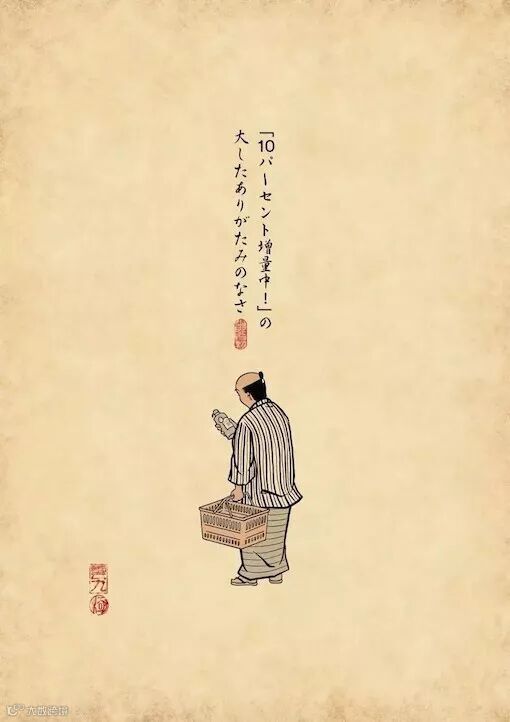 「10パーセント増量中！」の
大したありがたみのなさ
大数跨境